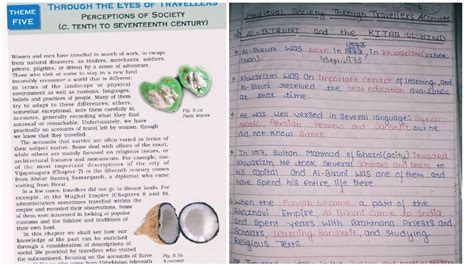 THEME
FIVE
THROUGH THE EYES OF TRAVELLERS
PERCEPTIONS OF SOCIETY
(C. TENTH TO SEVENTEENTH CENTURY)
Women and men have travelled in search of work, to escape
from natural disasters, as traders, merchants, soldiers,
priests, pilgrims, or driven by a sense of adventure.
Those who visit or come to stay in a new land
invariably encounter a world that is different:
in terms of the landscape or physical
environment as well as customs, languages,
beliefs and practices of people. Many of them
try to adapt to these differences; others,
somewhat exceptional, note them carefully in
accounts, generally recording what they find
unusual or remarkable. Unfortunately, we have
practically no accounts of travel left by women, though
we know that they travelled.
The accounts that survive are often varied in terms of
their subject matter. Some deal with affairs of the court,
while others are mainly focused on religious issues, or
architectural features and monuments. For example, one
of the most important descriptions of the city of
Vijayanagara (Chapter 7) in the fifteenth century comes
from Abdur Razzaq Samarqandi, a diplomat who came
visiting from Herat.
In a few cases, travellers did not go to distant lands. For
example, in the Mughal Empire (Chapters 8 and 9),
administrators sometimes travelled within the
empire and recorded their observations. Some
of them were interested in looking at popular
customs and the folklore and traditions of
their own land.
In this chapter we shall see how our
knowledge of the past can be enriched
through a consideration of descriptions of
social life provided by travellers who visited
the subcontinent, focusing on the accounts of three
Fig. 5.1a
Paan leaves
Fig. 5.1b
A coconut
Medieval Society Through Travellers Accounts
AL-BIRUNI and the KITAB-UL-HIND
Al-Biruni was born in 973, in Khwarizm
4 Sep, 973
Khwarizm was an important centre of learning, and
Al-Biruni received the best education available
at that time.
He was well versed in several languages: Syriac,
Arabic, Persian, Hebrew and Sanskrit but he
did not know Greek
In 1017, Sultan Mahmud of Ghazni invaded
Khwarizm. He took several scholars and poets to
his capital and Al-Biruni was one of them and
have spend his entire life there.
When the Punjab became a part of the
Ghaznavi Empire, Al-Biruni came to India
and spent years with Brahmana Priests and
Scholars, learning Sanskrit, and studying
Religious Texts.